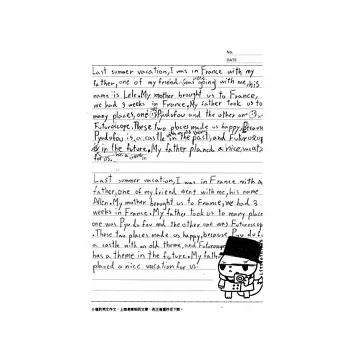 No.
DATE
Last summer vacation, I was in France with my
father, one of my friend going with me, his
name is Lele. My mother brought us to France,
we had 3 weeks in France. My father took us to
many places, one is Pyudufou and the other one is
Futuroscope. These two places made us happy, Because
Pyudufou is a castle in the past, and Futuroscope
is in the future. My father planed a nice vacation
for us.
Last summer vacation, I was in France with a
father, one of my friend went with me, his name
Allen. My mother brought us to France, we had 3
weeks in France. My father took us to many place
one was Pyu du fou and the other one was Futuroscop
. These two places made us happy, because Pyu du fou
a castle with an old theme, and Futuroscop
has a theme in the future. My father
planed a nice vacation for us.